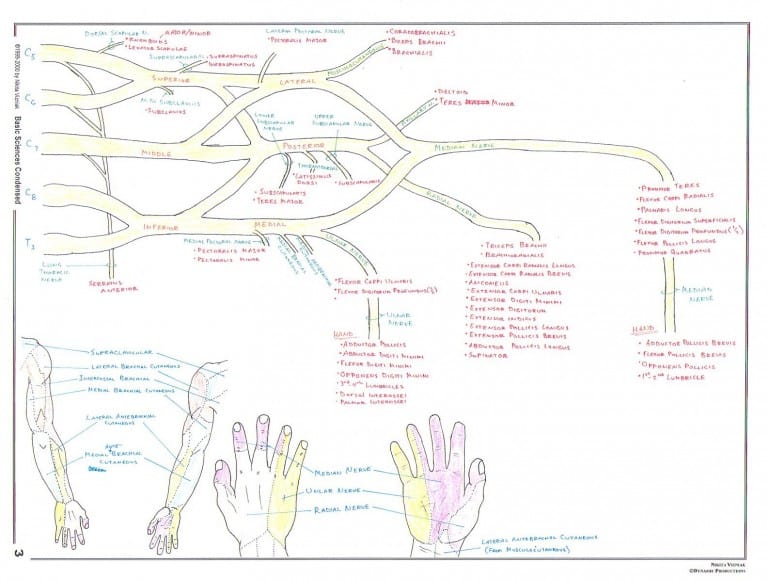 ©1998-2000 by Nikita Vizniak Basic Sciences Condensed
3
C5
C6
C7
C8
DORSAL SCAPULAR N.
MAJOR/MINOR
• RHOMBOIDS
• LEVATOR SCAPULAE
SUPRASCAPULAR N.
• SUPRASPINATUS
• INFRASPINATUS
SUPERIOR
N TO SUBCLAVIUS
• SUBCLAVIUS
LATERAL PECTORAL NERVE
• PECTORALIS MAJOR
LATERAL
MUSCULOCUTANEOUS
• CORACOBRACHIALIS
• BICEPS BRACHII
• BRACHIALIS
AXILLARY N.
• DELTOID
• TERES MINOR
LOWER
SUBSCAPULAR
NERVE
UPPER
SUBSCAPULAR NERVE
MIDDLE
POSTERIOR
THORACODORSAL
• LATISSIMUS
DORSI
• SUBSCAPULARIS
• SUBSCAPULARIS
• TERES MAJOR
MEDIAN NERVE
RADIAL NERVE
INFERIOR
MEDIAL
MEDIAL PECTORAL NERVE
• PECTORALIS MAJOR
• PECTORALIS MINOR
MEDIAL BRACHIAL
CUTANEOUS
ULNAR NERVE
LONG
THORACIC
NERVE
SERRATUS
ANTERIOR
• FLEXOR CARPI ULNARIS
• FLEXOR DIGITORUM PROFUNDUS (½)
ULNAR
NERVE
HAND
• ADDUCTOR POLLICIS
• ABDUCTOR DIGITI MINIMI
• FLEXOR DIGITI MINIMI
• OPPONENS DIGITI MINIMI
• 3rd & 4th LUMBRICLES
• DORSAL INTEROSSEI
• PALMAR INTEROSSEI
• TRICEPS BRACHII
• BRACHIORADIALIS
• EXTENSOR CARPI RADIALIS LONGUS
• EXTENSOR CARPI RADIALIS BREVIS
• ANCONEUS
• EXTENSOR CARPI ULNARIS
• EXTENSOR DIGITI MINIMI
• EXTENSOR DIGITORUM
• EXTENSOR INDICIS
• EXTENSOR POLLICIS LONGUS
• EXTENSOR POLLICIS BREVIS
• ABDUCTOR POLLICIS LONGUS
• SUPINATOR
• PRONATOR TERES
• FLEXOR CARPI RADIALIS
• PALMARIS LONGUS
• FLEXOR DIGITORUM SUPERFICIALIS
• FLEXOR DIGITORUM PROFUNDUS (½)
• FLEXOR POLLICIS LONGUS
• PRONATOR QUADRATUS
MEDIAN
NERVE
HAND
• ABDUCTOR POLLICIS BREVIS
• FLEXOR POLLICIS BREVIS
• OPPONENS POLLICIS
• 1st & 2nd LUMBRICLE
SUPRACLAVICULAR
LATERAL BRACHIAL CUTANEOUS
INTERCOSTAL BRACHIAL
MEDIAL BRACHIAL CUTANEOUS
LATERAL ANTEBRACHIAL
CUTANEOUS
ANTE
MEDIAL BRACHIAL
CUTANEOUS
MEDIAN NERVE
ULNAR NERVE
RADIAL NERVE
LATERAL ANTEBRACHIAL CUTANEOUS
(FROM MUSCULOCUTANEOUS)
NIKITA VIZNIAK
©DYNAMIC PRODUCTIONS